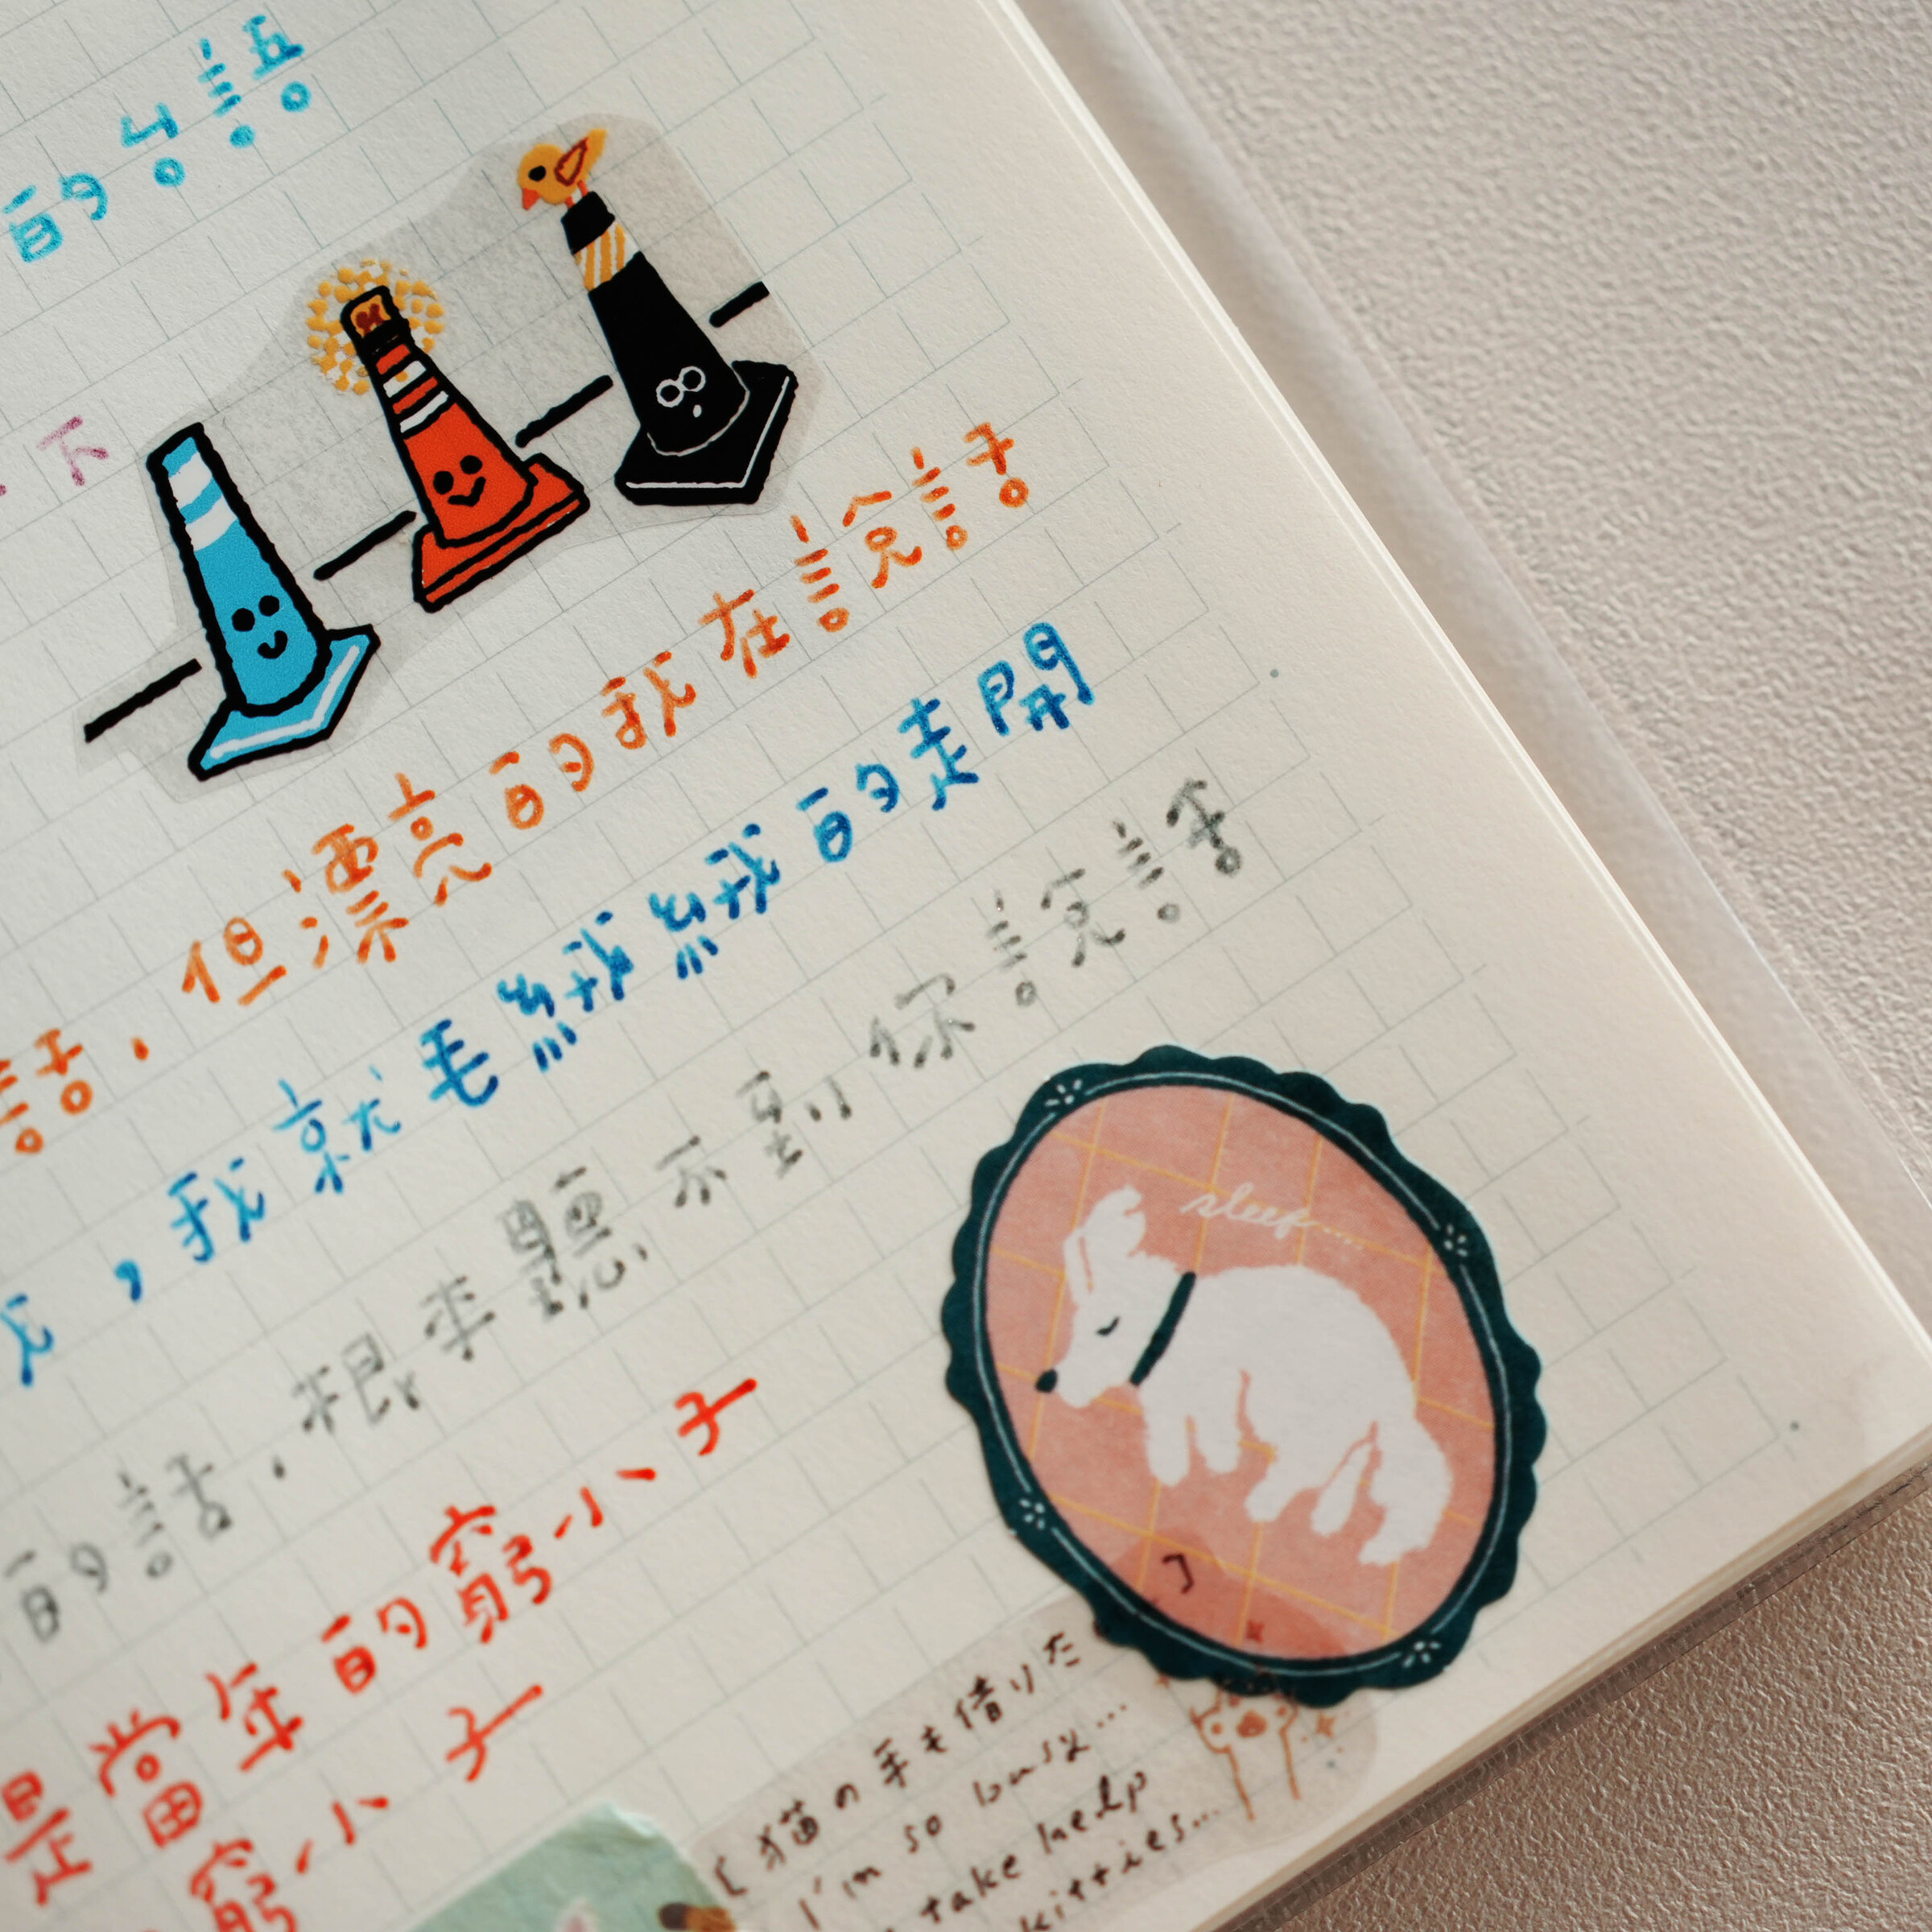 的台語
下
話，但漂亮的我在說話
，我就毛絨絨的走開
的話，根本聽不到你說話
是當年的窮小子
窮小子
sleep....
「猫の手も借りた
I'm so busy...
take help
kitties...